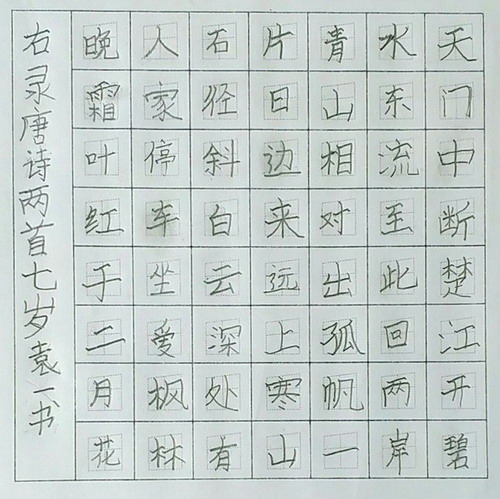 天门中断楚江开碧
水东流至此回两岸
青山相对出孤帆一
片日边来远上寒山
石径斜白云深处有
人家停车坐爱枫林
晚霜叶红于二月花
右录唐诗两首七岁袁一书